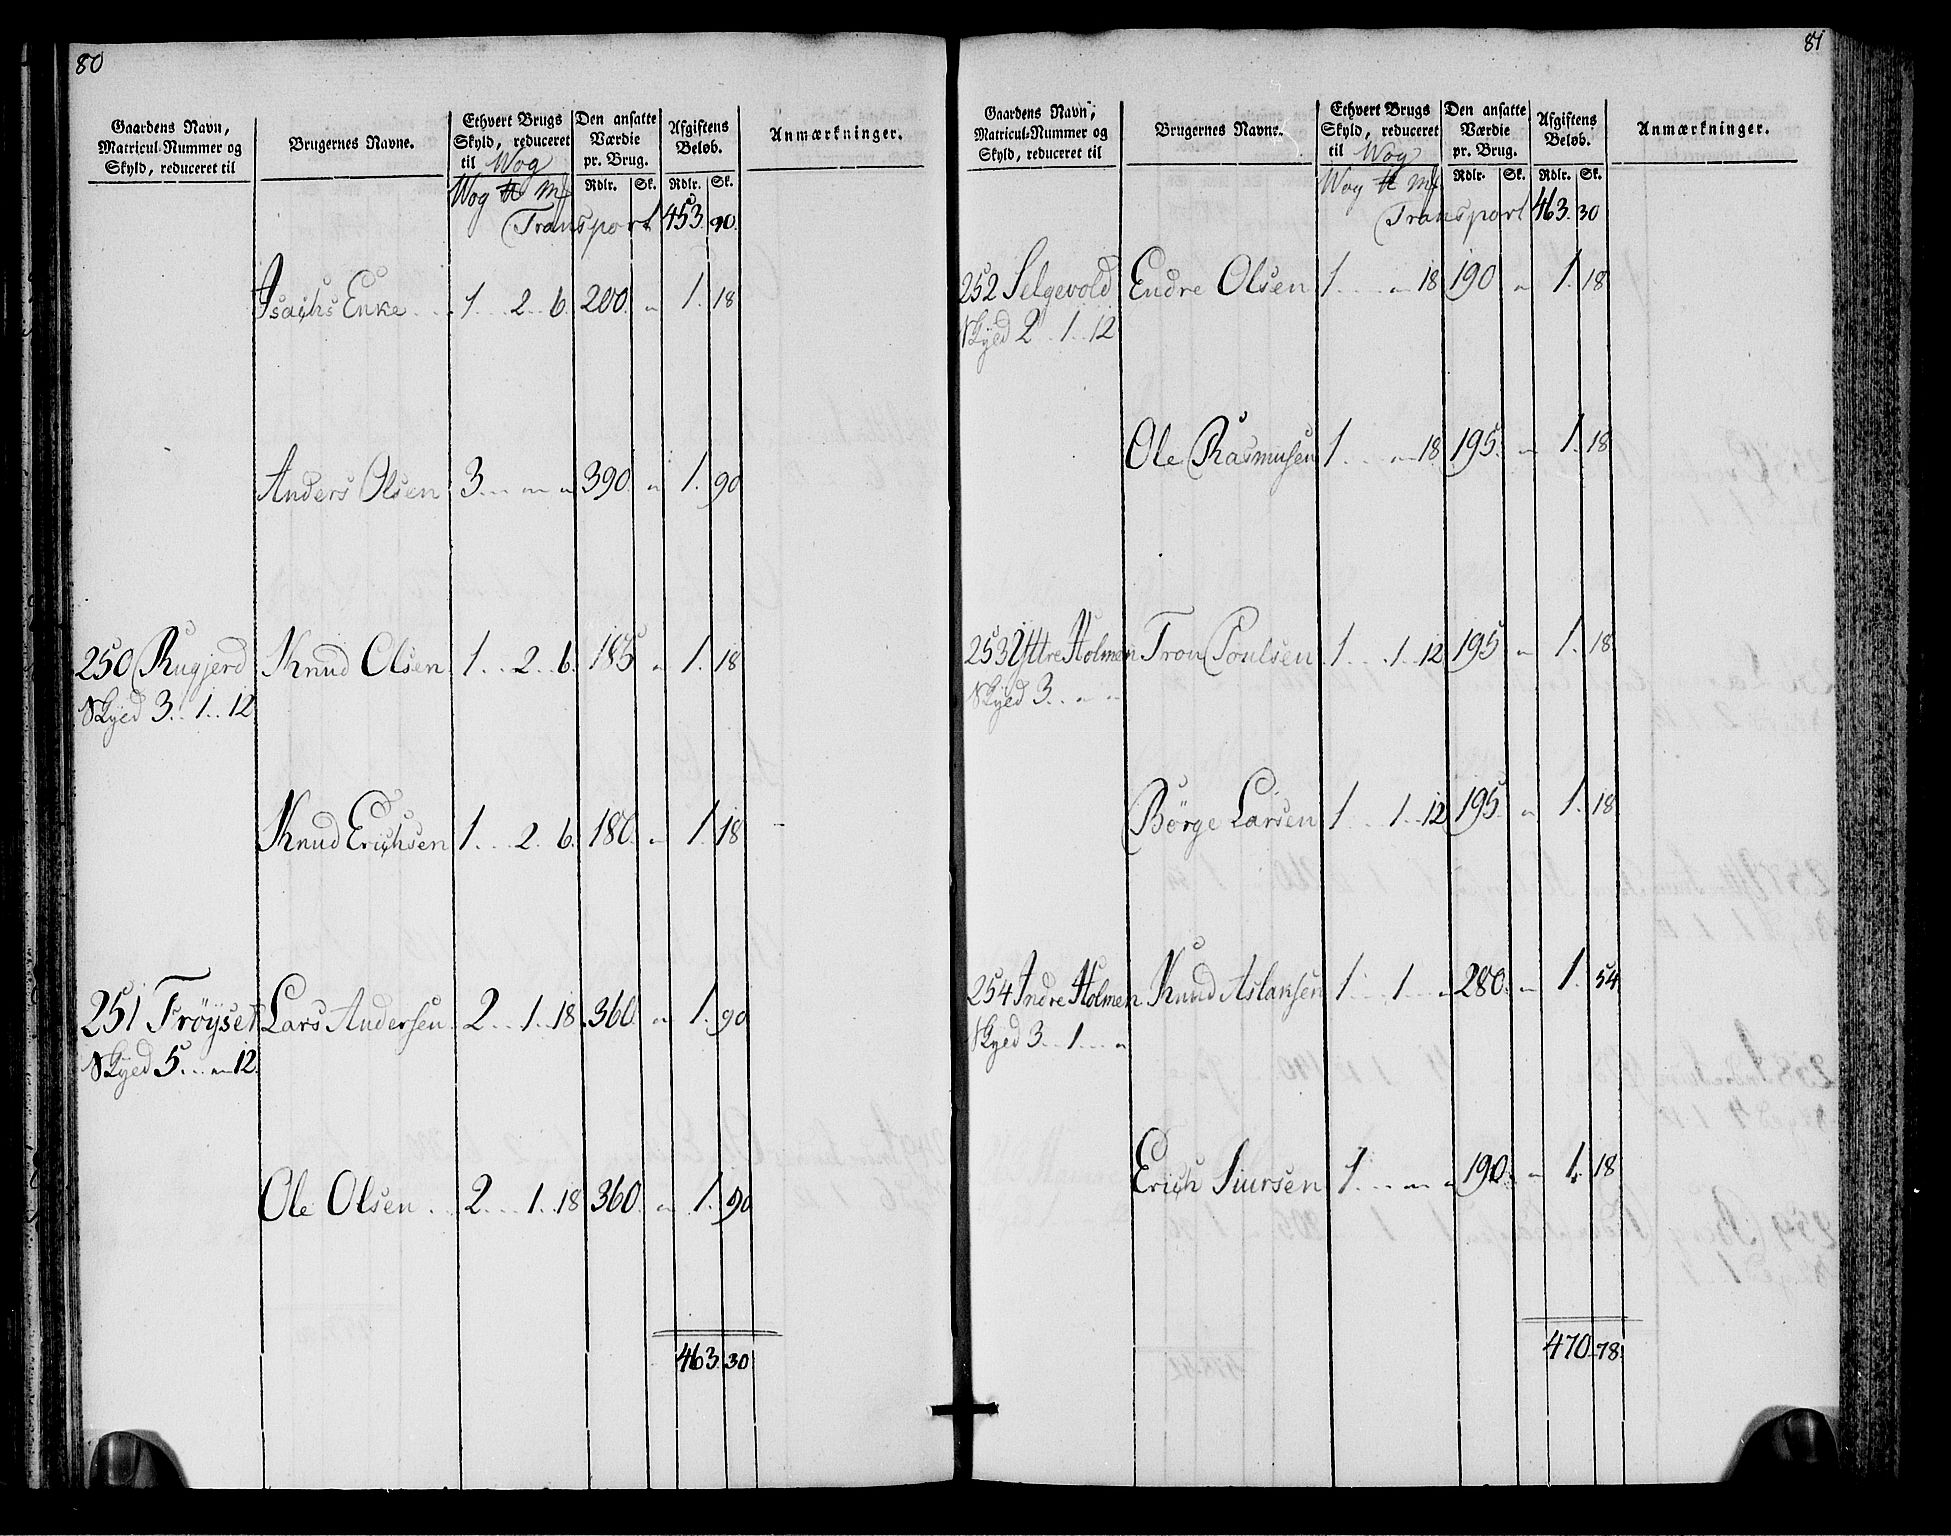 80
Gaardens Navn, Matricul-Nummer og Skyld, reduceret til
Brugernes Navne.
Ethvert Brugs Skyld, reduceret til Wog
Den ansatte Værdie pr. Brug.
Afgiftens Beløb.
Anmærkninger.
Wog ℔ Mk Rdlr. Sk. Rdlr. Sk.
Transport 453. 90.
Isachs Enke 1 2 6 200 " 1. 18
Anders Olsen 3 " " 390 " 1. 90
250 Rugjerd Knud Olsen 1 2 6 185 " 1. 18
Skyed 3 1 12
Knud Erichsen 1 2 6 180 " 1. 18
251 Frøyset Lars Andersen 2 1 18 360 " 1. 90
Skyed 5 " 12
Ole Olsen 2 1 18 360 " 1. 90
463. 30
81
Gaardens Navn, Matricul-Nummer og Skyld, reduceret til
Brugernes Navne.
Ethvert Brugs Skyld, reduceret til Wog
Den ansatte Værdie pr. Brug.
Afgiftens Beløb.
Anmærkninger.
Wog ℔ Mk Rdlr. Sk. Rdlr. Sk.
Transport 463. 30
252 Selgevold Endre Olsen 1 " 18 190 " 1. 18
Skyed 2 1 12
Ole Rasmusen 1 " 18 195 " 1. 18
253 Yttre Holmen Tron Poulsen 1 1 12 195 " 1. 18
Skyed 3 " "
Börge Larsen 1 1 12 195 " 1. 18
254 Indre Holmen Knud Aslaksen 1 1 " 280 " 1. 54
Skyed 3 1 "
Erich Siursen 1 " " 190 " 1. 18
470. 78.